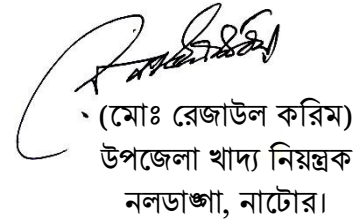 (মোঃ রেজাউল করিম)
উপজেলা খাদ্য নিয়ন্ত্রক
নলডাঙ্গা, নাটোর।